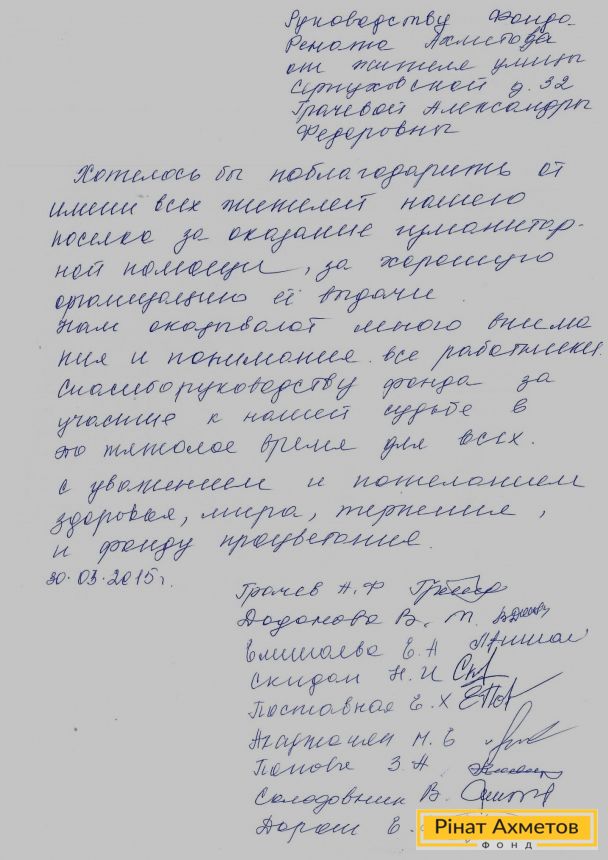 Руководству Фонда
Рената Ахметова
от жителя улицы
Серпуховской д. 32
Грачевой Александры
Федоровны
Хотелось бы поблагодарить от
имени всех жителей нашего
поселка за оказание гуманитар-
ной помощи, за хорошую
организацию её выдачи.
Нам оказывают много внима
ния и понимания все работники.
Спасибо руководству фонда за
участие к нашей судьбе в
это тяжелое время для всех.
с уважением и пожеланием
здоровья, мира, терпения,
и фонду процветания.
30.03.2015г.
Грачев А.Ф
Доданова В. М.
Елишаева Е.А
Скидан Н.И
Поставная Е.Х
Агаджанян М. Е
З.А
Солодовник В.
Дорош Е.
Рінат Ахметов
ФОНД